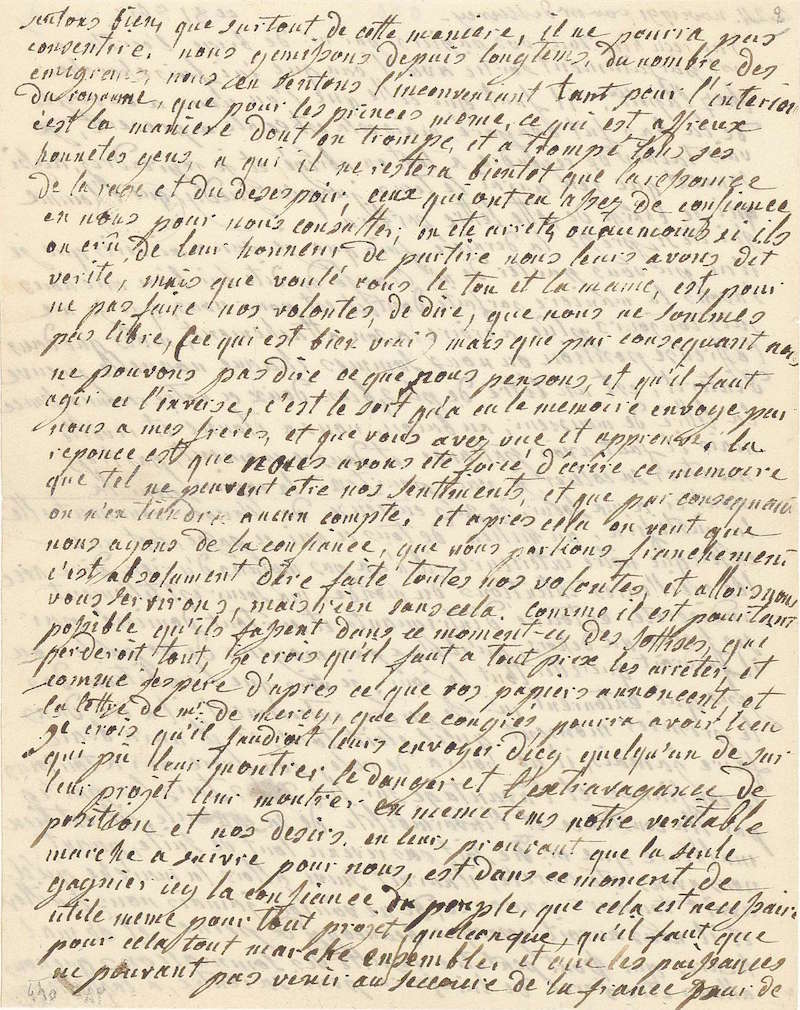 sentons bien, que surtout de cette maniere, il ne pourra pas
consentire. nous gemissons depuis longtems, du nombre des
emigrans, nous en sentons l'inconveniant tant pour l'interior
du royaume, que pour les princes meme, ce qui est affreux
c'est la maniere dont on trompe, et a trompé tous ses
honnetes gens, a qui il ne restera bientot que la resource
de la rage et du desespoir, ceux qui ont eu assez de confiance
en nous pour nous consulter, on été arrete, ou aumoins si ils
on crû de leur honneur de partire nous leurs avons dit
verité, mais que voulé vous le ton et la manie, est, pour
ne pas faire nos volontes, de dire, que nous ne sommes
pas libre, (ce qui est bien vrai) mais que par consequant nous
ne pouvons pas dire ce que nous pensons, et qu'il faut
agir en l'inverse, c'est le sort qu'a eu le memoire envoye par
nous a mes freres, et que vous avez vue et approuvé, la
reponce est que nous avons été forcé d'écrire ce memoire
que tel ne peuvent etre nos sentiments, et que par consequant
on n'en tiendra aucun compte. et apres cela on veut que
nous ayons de la confiance, que nous parlions franchement
c'est absolument dire faite toutes nos volontes, et allors nous
vous servirons, mais rien sans cela. comme il est pourtant
possible qu'ils fassent dans ce moment-cy des sottises, qui
perderoit tout, je crois qu'il faut a tout prix les arreter, et
comme j'espere d'apres ce que vos papiers annoncent, et
la lettre de mr: de mercy, que le congrés pourra avoir lieu
je crois qu'il faudroit leurs envoyer d'icy quelqu'un de sur
qui pû leur montrer le danger et l'extravagance de
leur projet leur montrer en meme tems notre veritable
position et nos desirs. en leurs prouvant que la seule
marche a suivre pour nous, est dans ce moment de
gagnier icy la confiance du peuple, que cela est necessaire
utile meme pour tout projet quelconque, qu'il faut que
pour cela tout marche ensemble, et que les puissances
ne pouvant pas venir au secoure de la france pour de